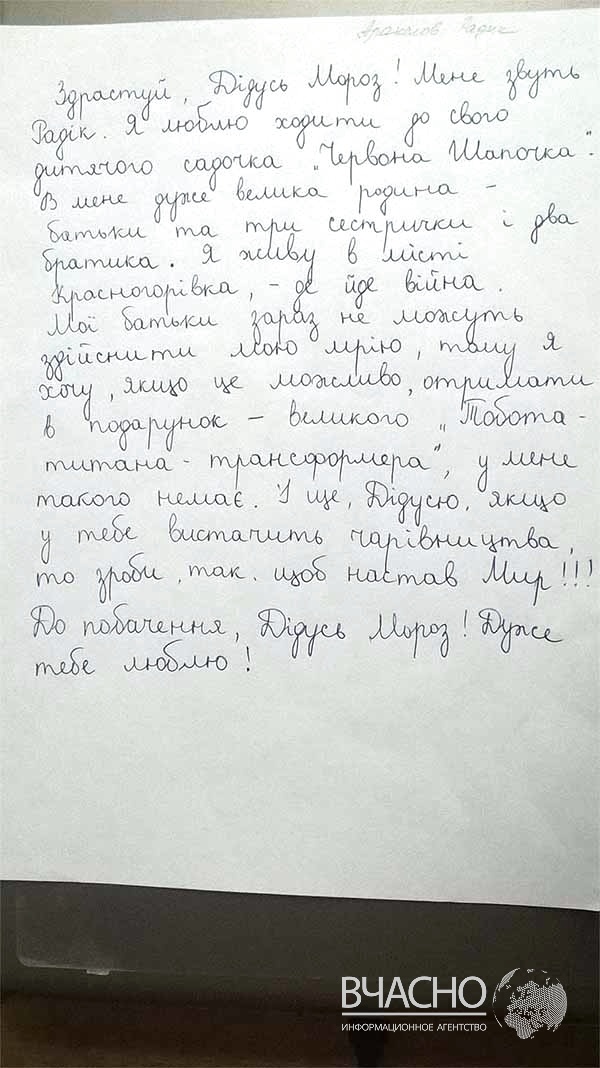 Радік
Здраствуй, Дідусь Мороз! Мене звуть
Радік. Я люблю ходити до свого
дитячого садочка „Червона Шапочка".
В мене дуже велика родина -
батьки та три сестрички і два
братика. Я живу в місті
Красногорівка, - де йде війна.
Мої батьки зараз не можуть
здійснити мою мрію, тому я
хочу, якщо це можливо, отримати
в подарунок - великого „Тобота-
титана-трансформера", у мене
такого немає. І ще, Дідусю, якщо
у тебе вистачить чарівництва,
то зроби, так. щоб настав Мир!!!
До побачення, Дідусь Мороз! Дуже
тебе люблю!
ВЧАСНО
ИНФОРМАЦИОННОЕ АГЕНТСТВО